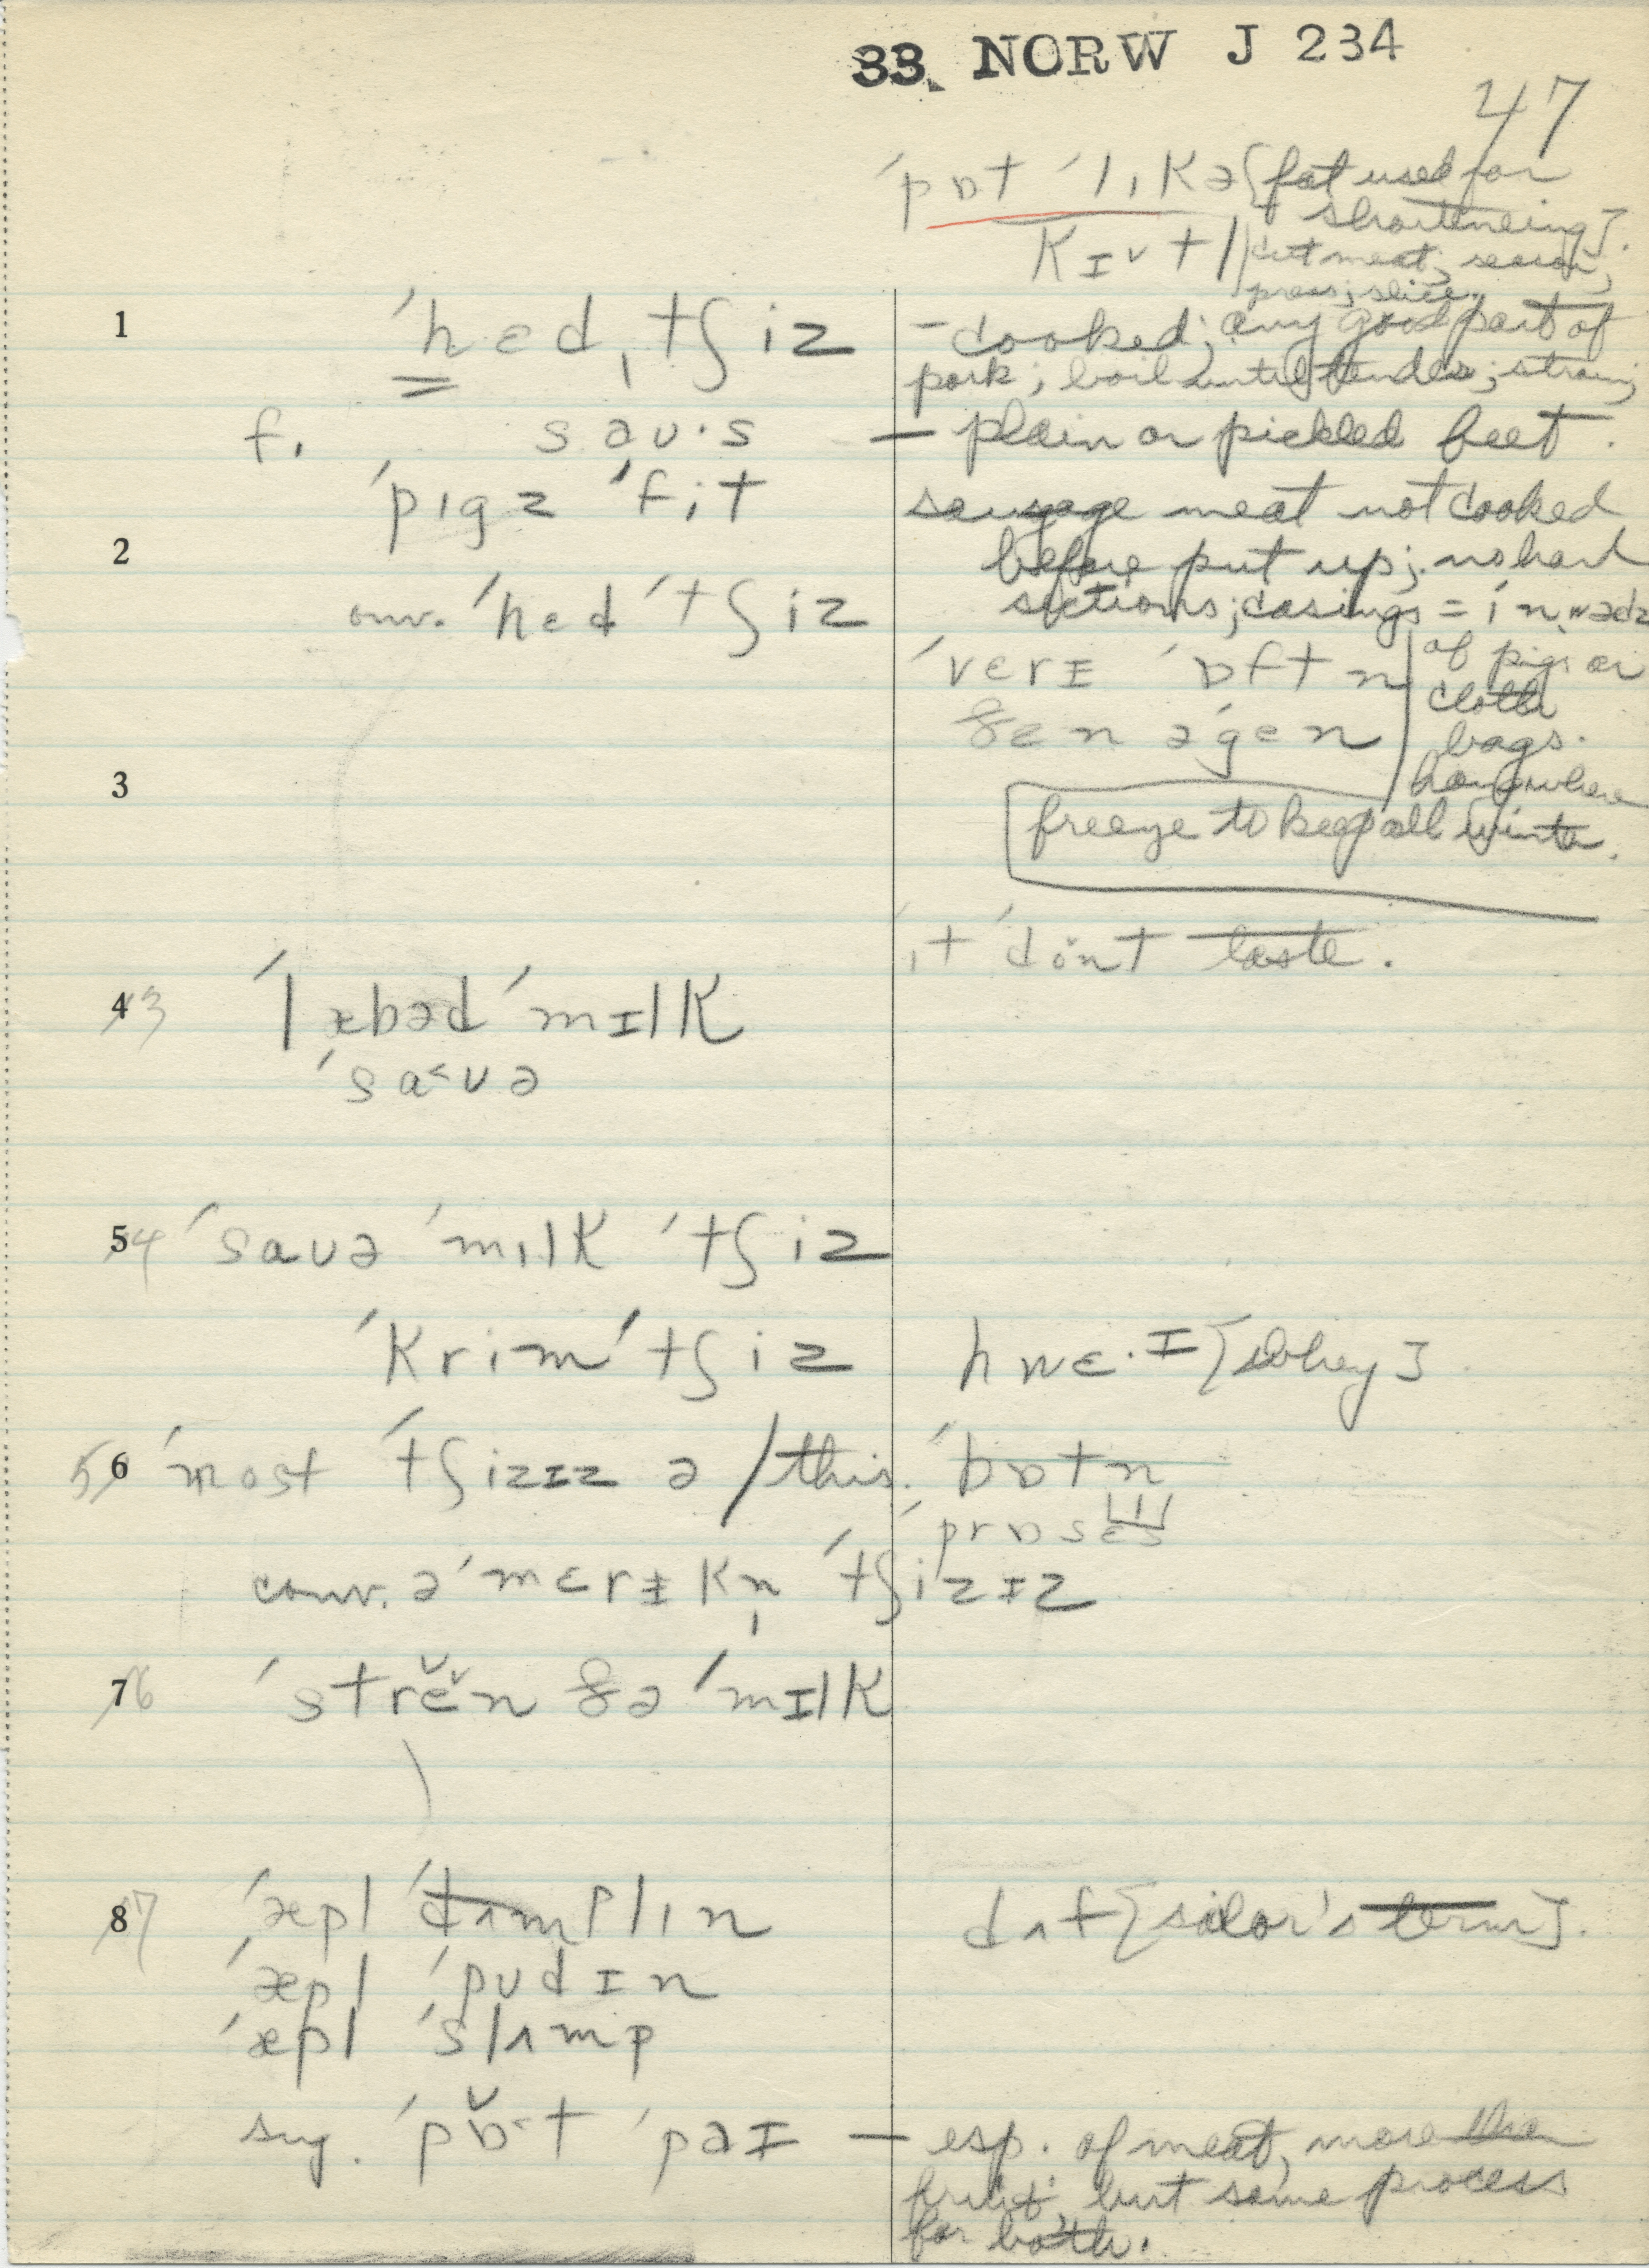 33. NORW J 234
47
ˈpɒt ˈlɪkə [fat used for
shortening].
kɪvtl cut meat, season,
press; slice.
1 ˈhɛdˌtʃiz – cooked; any good part of
pork; boil until tender; strain;
f. saʊ·s — plain or pickled beet.
ˈpɪgz ˈfit sausage meat not cooked
2 before put up; no hard
conv. ˈhɛd ˈtʃiz sections; casings = ɪnwədz
ˈvɛrɪ ˈɒftn of pigs or
cloth
ðɛn əˈgɛn bags.
3 hang where
freeze to keep all winter.
ɪt ˈdönt taste.
43 ˈlæbəd ˈmɪlk
ˈsaʊə
54 ˈsaʊə ˈmɪlk ˈtʃiz
ˈkrimˈtʃiz hwɛ·ɪ [whey].
5 6 ˈmost ˈtʃizɪz ə / this. ˈbɒtn
ˈprɒsɛs
conv. əˈmɛrɪkn̩ ˈtʃizɪz
76 ˈstrĕn ðə ˈmɪlk
87 ˈæpl ˈdʌmplɪn dʌf [sailor's term].
ˈæpl ˈpʊdɪn
ˈæpl ˈslʌmp
sug. ˈpɒt ˈpaɪ — esp. of meat, more than
fruit; but same process
for both.